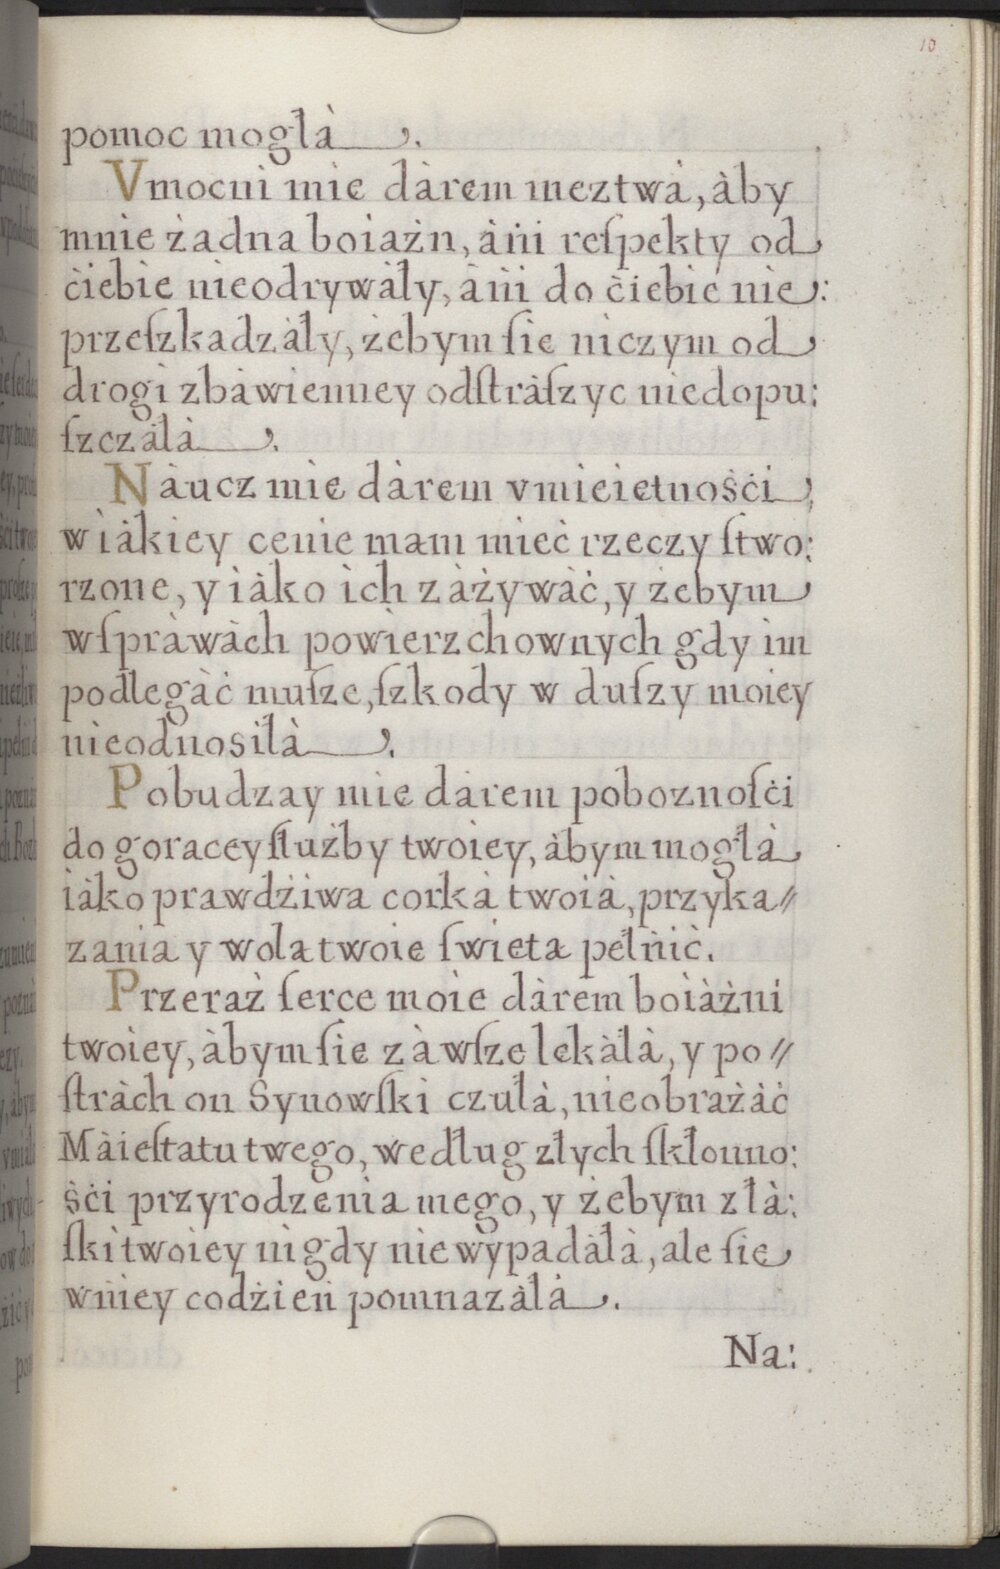 10
pomoc mogłà.
Vmocni mie dàrem meztwà, àby
mnie żadna boiaźn, àṅi reſpekty od
ċiebie nieodrywàły, àṅi do ċiebie nie:
przeſzkadzàły, żebym ſie niczym od
drogi zbàwienney odſtràſzyc niedopu:
ſzczàłà.
Nàucz mie dàrem vmieietnoṡċi,
w iàkiey cenie mam mieċ rzeczy ſtwo:
rzone, y iàko ich zàżywàċ, y żebym
w ſpràwàch powierzchownych gdy im
podlegàċ muſze, ſzkody w duſzy moiey
nieodnosiłà.
Pobudzay mie dàrem poboznoſċi
do goracey ſłużby twoiey, àbym mogłà
iàko prawdźiwa corkà twoià, przyka//
zania y wola twoie ſwieta pełṅiċ.
Przeraż ſerce moie dàrem boiàźni
twoiey, àbym ſie zàwſze lekàłà, y po//
ſtràch on Synowſki czułà, nieobrażàċ
Màieſtatu twego, według złych ſkłonno:
ṡċi przyrodzenia mego, y żebym z łà:
ſki twoiey nigdy niewypadàłà, ale ſie
wṅiey codźieṅ pomnazàłà.
Na: